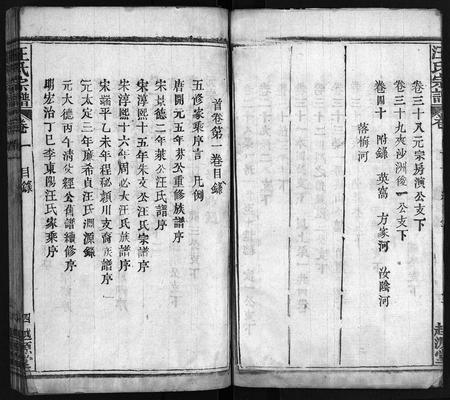 汪氏宗譜
卷三十八元宗易濱公支下
卷三十九夾沙洲俊一公支下
卷四十 附錄 英窩 方家河 汝陰河
落梅河
越源堂
首卷第一卷目錄
五修家乘序言 凡例
唐開元五年 公重修族譜序
宋景德二年 公汪氏譜序
宋淳熙十五年朱文公汪氏宗譜序
宋淳熙十六年周必大汪氏族譜序
宋端平乙未年程珌潁川支裔族譜序
元太定三年廉希貞汪氏淵源錄
元大德丙午清 經公舊譜續修序
明宏治丁巳李東陽汪氏家乘序
汪氏宗譜
卷一 目錄
四 越源堂